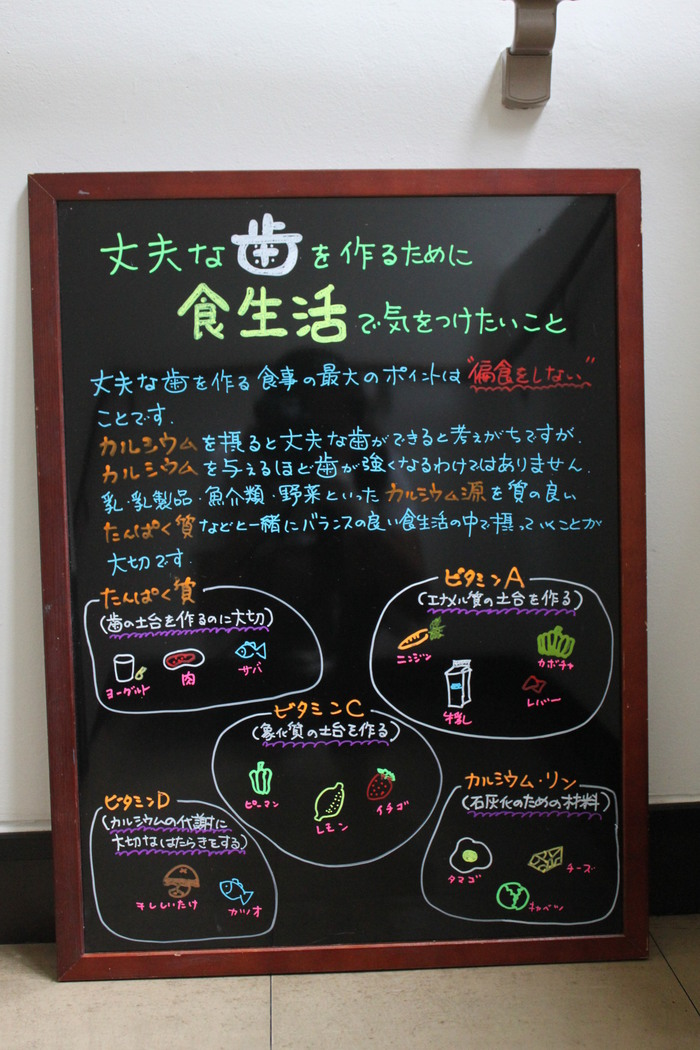 丈夫な歯を作るために
食生活で気をつけたいこと
丈夫な歯を作る食事の最大のポイントは"偏食をしない"
ことです.
カルシウムを摂ると丈夫な歯ができると考えがちですが.
カルシウムを与えるほど歯が強くなるわけではありません.
乳・乳製品・魚介類・野菜といったカルシウム源を質の良い
たんぱく質などと一緒にバランスの良い食生活の中で摂っていくことが
大切です.
たんぱく質
(歯の土台を作るのに大切)
ヨーグルト
肉
サバ
ビタミンA
(エナメル質の土台を作る)
ニンジン
牛乳
カボチャ
レバー
ビタミンC
(象化質の土台を作る)
ピーマン
レモン
イチゴ
ビタミンD
(カルシウムの代謝に
大切なはたらきをする)
干ししいたけ
カツオ
カルシウム・リン
(石灰化のための材料)
タマゴ
チーズ
キャベツ